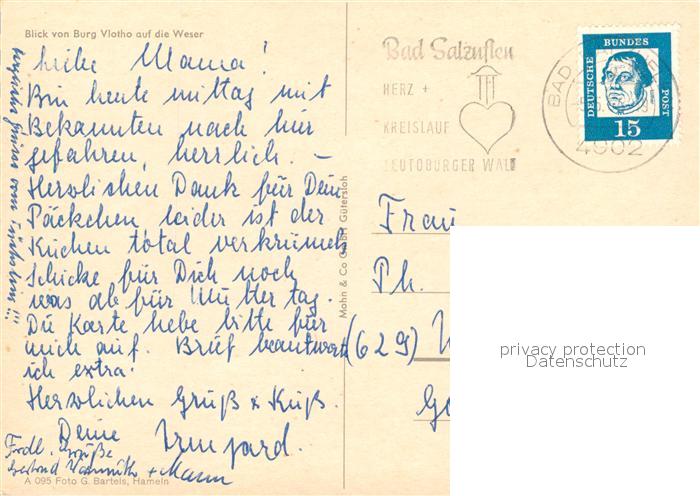 Blick von Burg Vlotho auf die Weser
Liebe Mama!
Bin heute mittag mit
Bekannten nach hier
gefahren, herrlich. –
Herzlichen Dank für Dein
Päckchen leider ist der
Kuchen total verkrümelt
Schicke für Dich noch
was ab für Muttertag.
Die Karte hebe bitte für
mich auf. Brief beantworte
ich extra.
Herzlichen Gruß & Kuß.
Deine Irmgard.
Frdl. Grüße
+ Mann
A 095 Foto G. Bartels, Hameln
Mohn & Co GmbH Gütersloh
Bad Salzuflen
HERZ +
KREISLAUF
TEUTOBURGER WALD
BAD
4902
DEUTSCHE BUNDESPOST
15
Frau
Ph.
(629)
privacy protection
Datenschutz